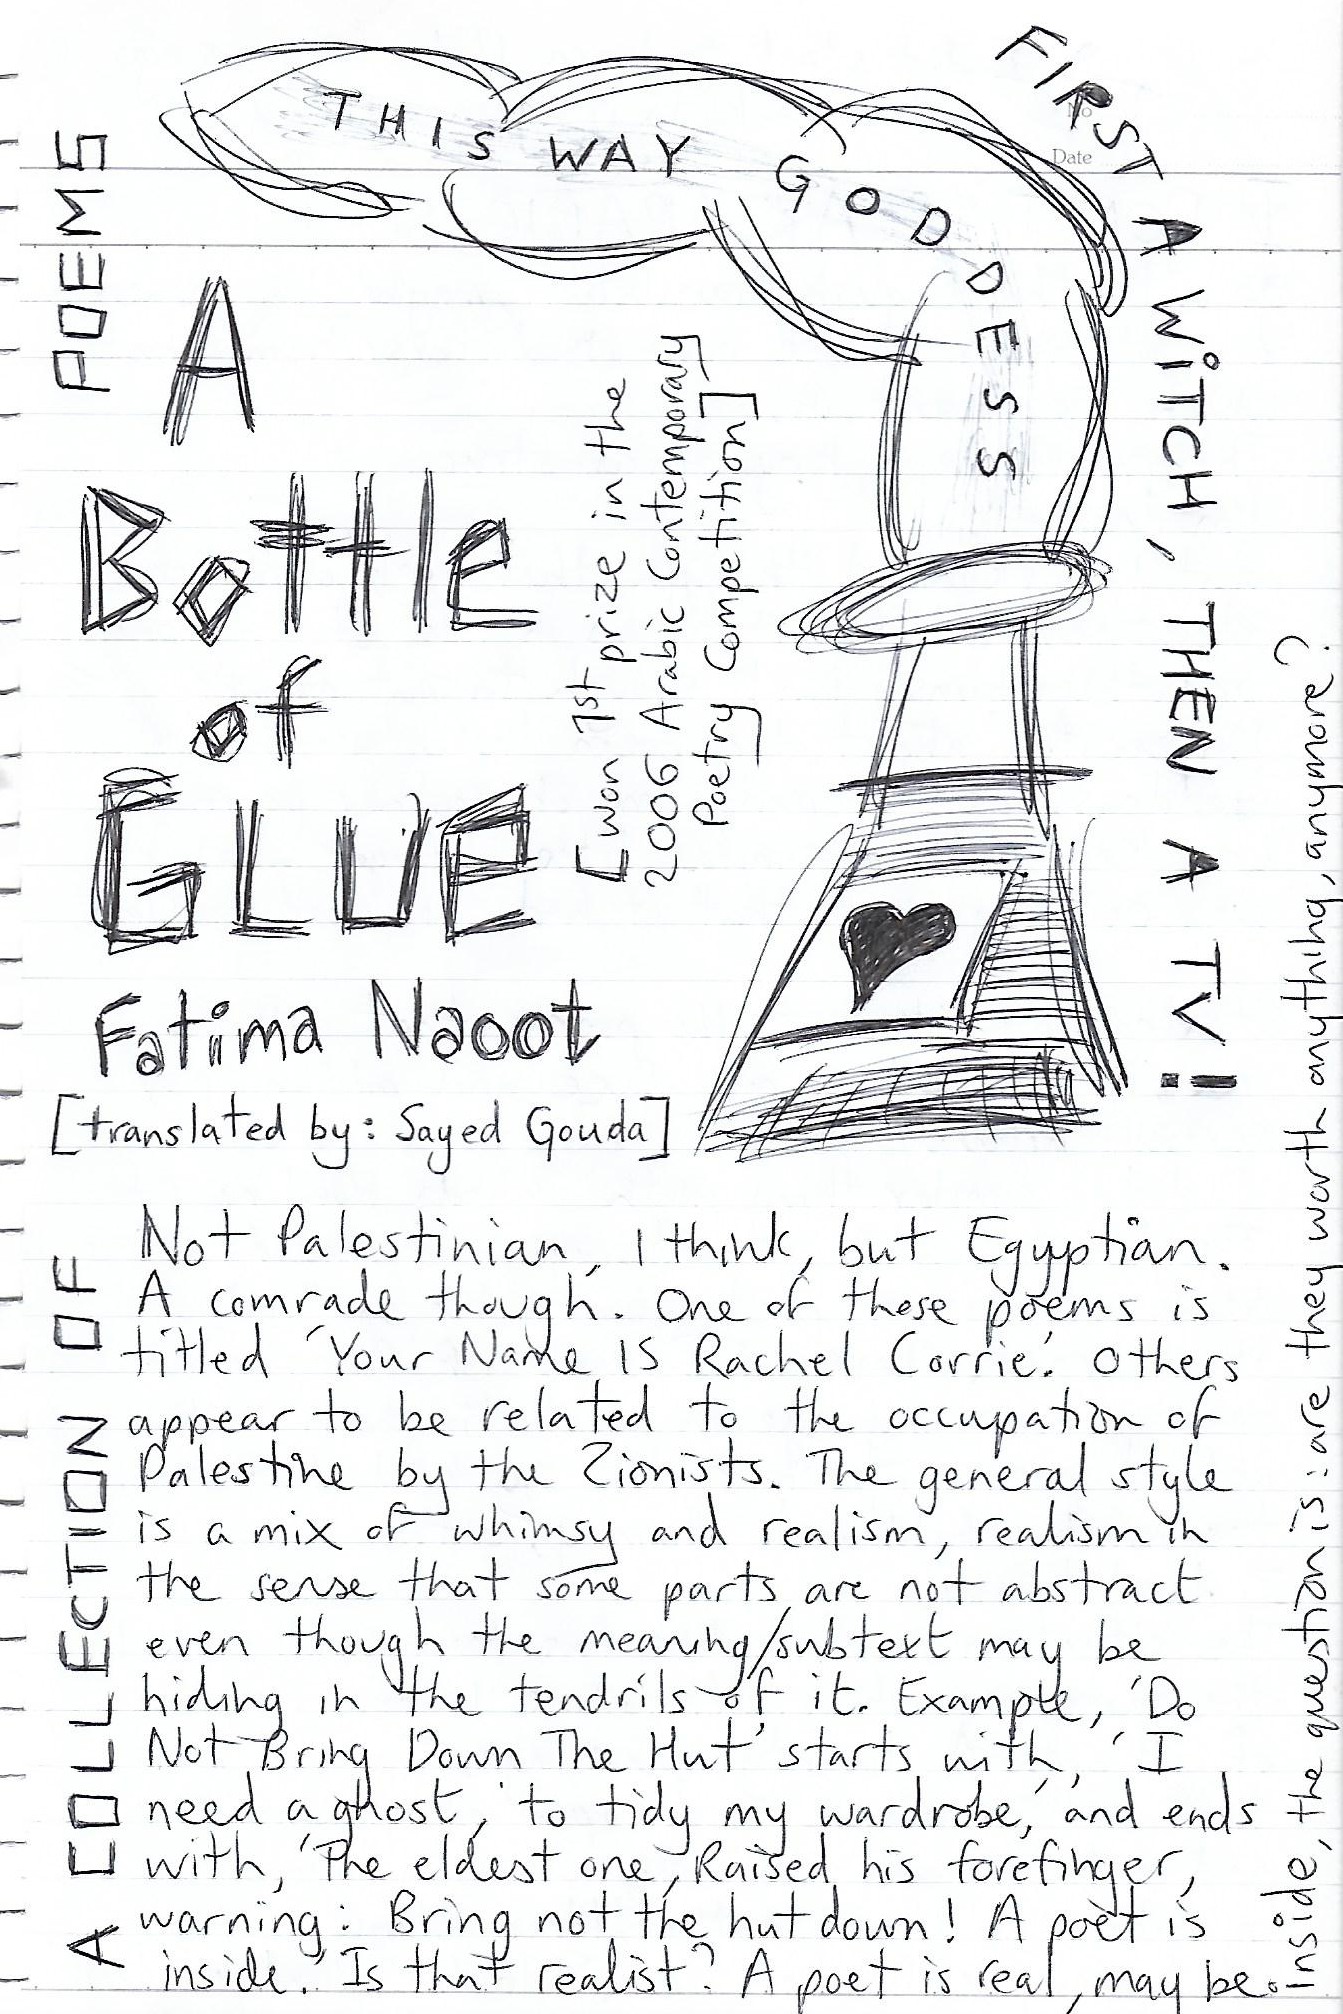 THIS WAY GODDESS
FIRST A WITCH, THEN A TV!
No
Date
A COLLECTION OF POEMS
A
Bottle
of
GLUE
[won 1st prize in the
2006 Arabic Contemporary
Poetry Competition]
Fatima Naoot
[translated by: Sayed Gouda]
Not Palestinian, I think, but Egyptian.
A comrade though. One of these poems is
titled 'Your Name IS Rachel Corrie'. Others
appear to be related to the occupation of
Palestine by the Zionists. The general style
is a mix of whimsy and realism, realism in
the sense that some parts are not abstract
even though the meaning/subtext may be
hiding in the tendrils of it. Example, 'Do
Not Bring Down The Hut' starts with, 'I
need a ghost,' 'to tidy my wardrobe,' and ends
with, 'The eldest one, Raised his forefinger,
warning: Bring not the hut down! A poet is
inside.' Is that realist? A poet is real, may be.
Inside, the question is: are they worth anything, anymore?